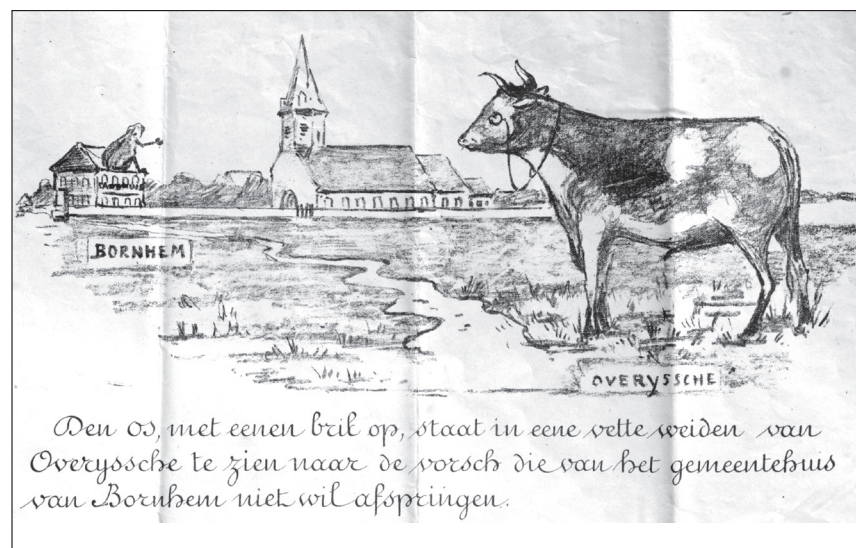 BORNHEM
OVERYSSCHE
Den os, met eenen bril op, staat in eene vette weiden van
Overyssche te zien naar de vorsch die van het gemeentehuis
van Bornhem niet wil afspringen.